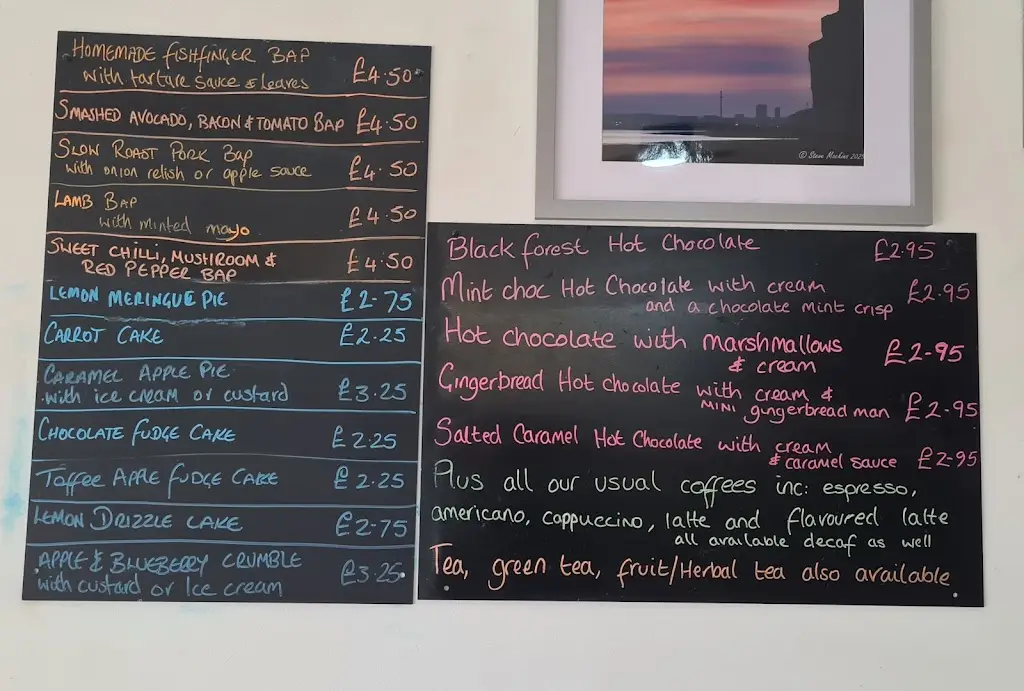 HOMEMADE FISHFINGER BAP
with tarture sauce & leaves £4.50
SMASHED AVOCADO, BACON & TOMATO BAP £4.50
SLOW ROAST PORK BAP
with onion relish or apple sauce £4.50
LAMB BAP
with minted mayo £4.50
SWEET CHILLI, MUSHROOM &
RED PEPPER BAP £4.50
LEMON MERINGUE PIE £2-75
CARROT CAKE £2.25
CARAMEL APPLE PIE
with ice cream or custard £3.25
CHOCOLATE FUDGE CAKE £2.25
Toffee APPLE FUDGE CAKE £2.25
LEMON DRIZZLE CAKE £2-75
APPLE & BLUEBERRY CRUMBLE
with custard or Ice cream £3.25
© Steve
Black forest Hot Chocolate £2.95
Mint choc Hot Chocolate with cream £2.95
and a chocolate mint crisp
Hot chocolate with marshmallows £2-95
& cream
Gingerbread Hot chocolate with cream &
MINI gingerbread man £2-95
Salted Caramel Hot Chocolate with cream
& caramel sauce £2-95
Plus all our usual coffees inc: espresso,
americano, cappuccino, latte and flavoured latte
all available decaf as well
Tea, green tea, fruit/Herbal tea also available